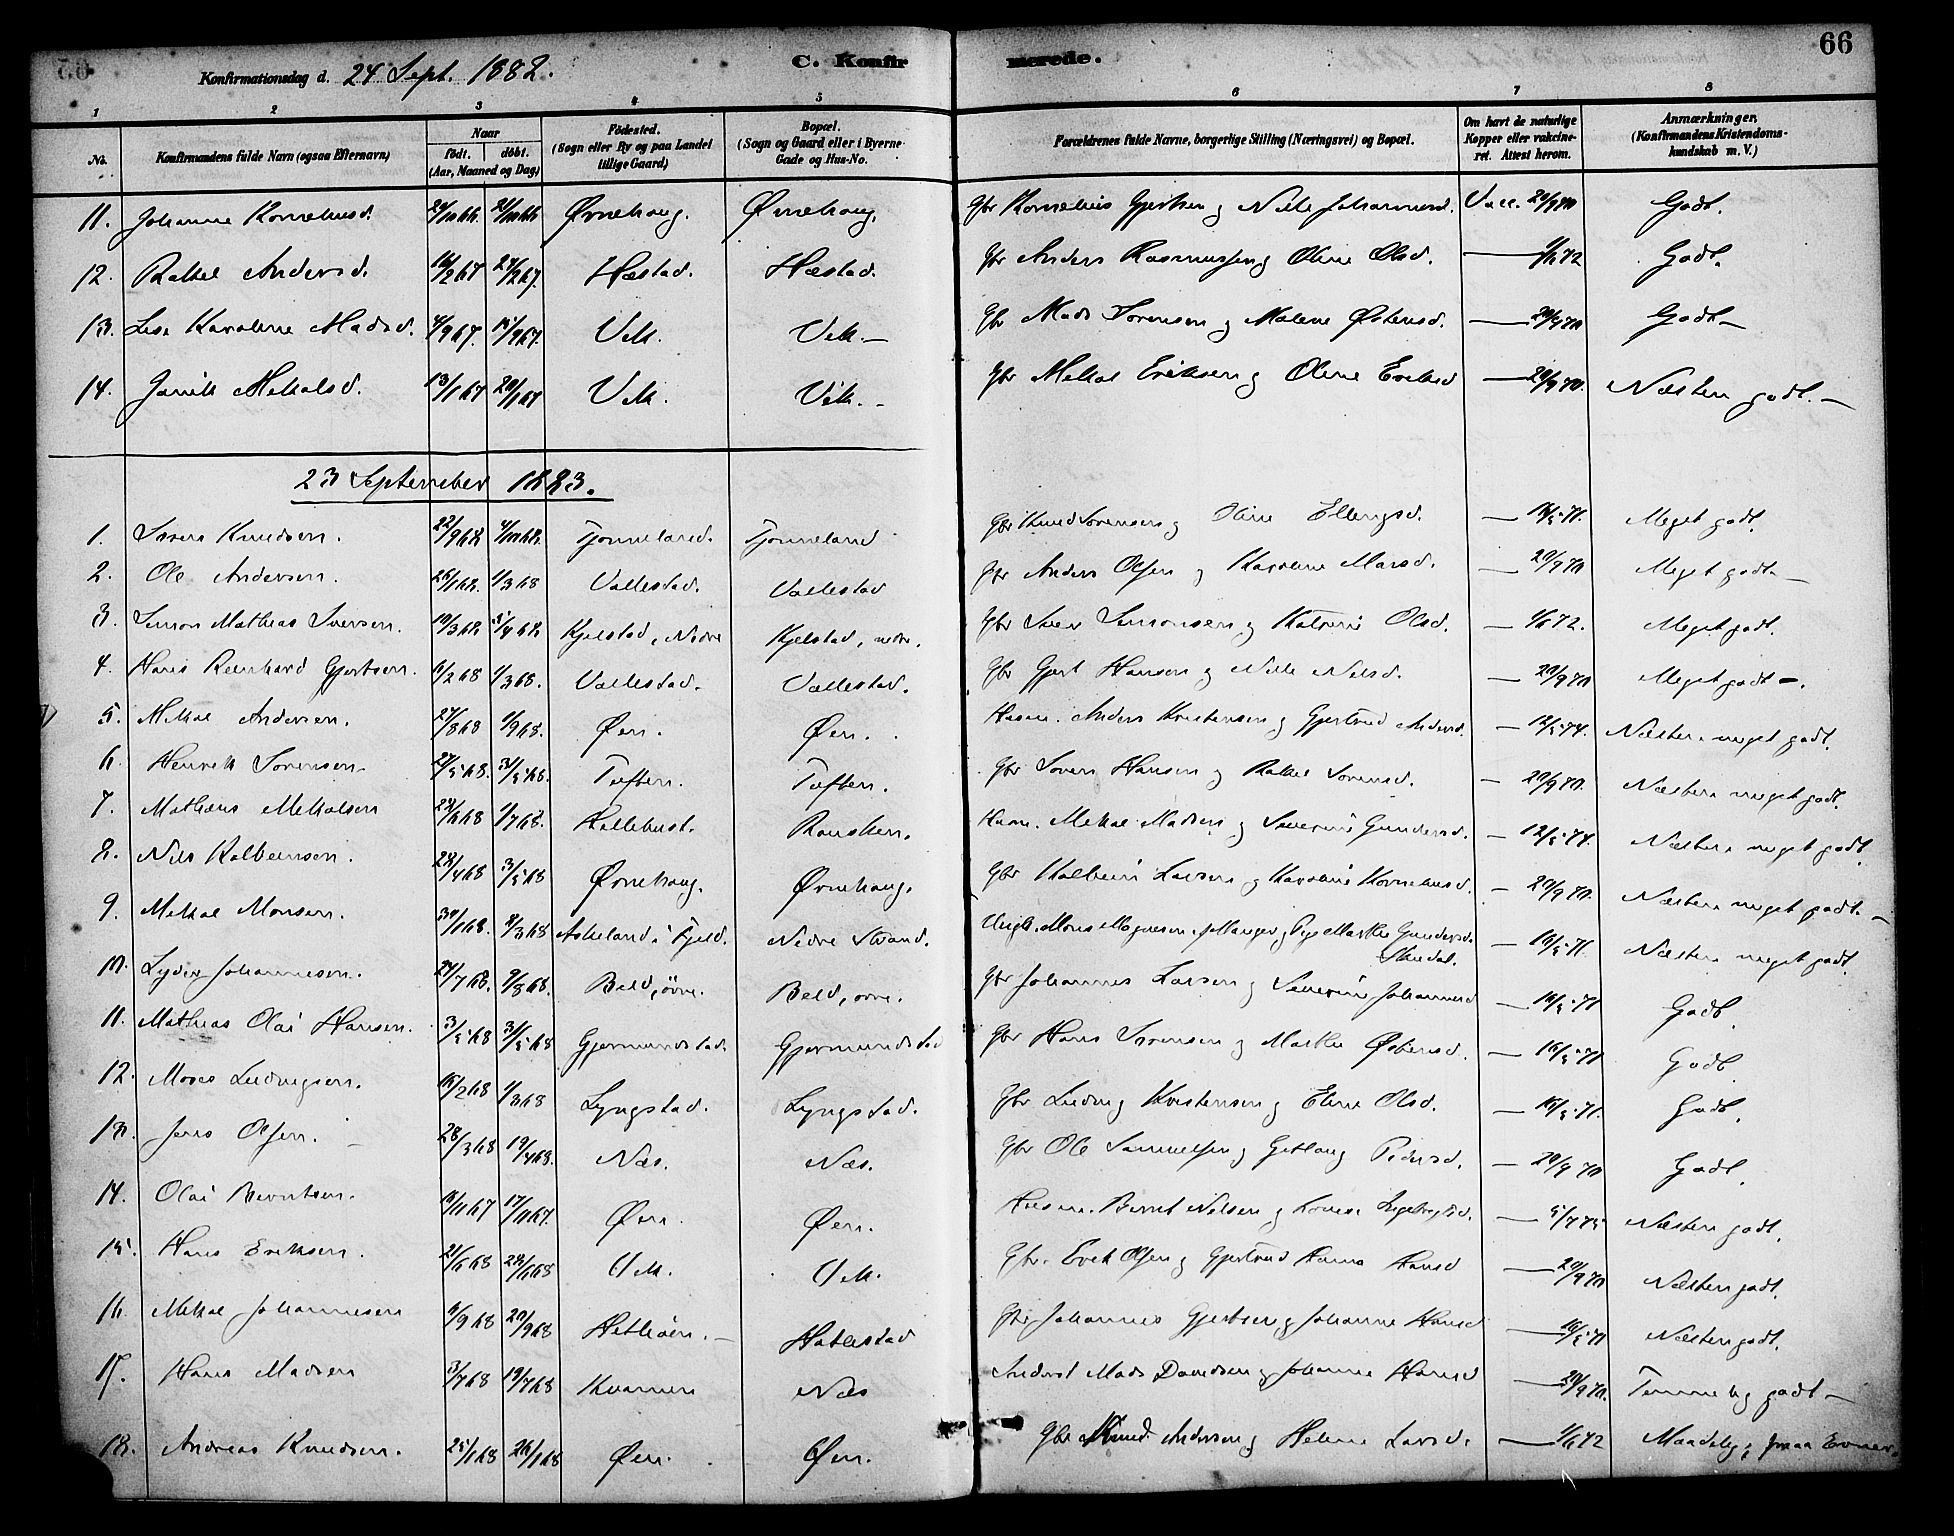 66
Konfirmationsdag d. 24 Sept. 1882. C. Konfirmerede.
1 2 3 4 5 6 7 8
No. Konfirmandens fulde Navn (ogsaa Efternavn) Naar født. døbt. (Aar, Maaned og Dag) Fødested. (Sogn eller By og paa Landet tillige Gaard) Bopæl. (Sogn og Gaard eller i Byerne Gade og Hus-No. Forældrenes fulde Navne, borgerlige Stilling (Næringsvei) og Bopæl. Om havt de naturlige Kopper eller vakcineret. Attest herom. Anmærkninger, (Konfirmandens Kristendomskundskab m. V.)
11. Johanne Korneliusd. Ørnehaug. Ørnehaug. Gbr Kornelius Gjertsen og Nille Johannesd. Vacc. 20/9 70 Godt.
12. Rakel Andersd. 14/2 67 27/2 67. Hæstad. Hæstad. Gbr Anders Rasmussen og Oline Olsd. — 1/6 72 Godt.
13. Lise Karoline Madsd. 4/9 67. 15/9 67. Vik. Vik. — Gbr Mads Sørensen og Malene Østensd. — 20/9 70 Godt —
14. Mekalsd. 13/1 67 20/1 67 Vik. Vik. — Gbr Mekal Eriksen og Oline Eriksd — 20/9 70. Næsten godt. —
23 September 1883.
1. Søren Knudsen. 22/9 68 4/10 68. Tjønneland. Tjønneland Gbr Knud Sørensen og Oline Ellingsd. — 16/5 71. Meget godt.
2. Ole Andersen. 26/1 68. 1/3 68 Vallestad. Vallestad Gbr Anders Olsen og Karoline Marsd. — 20/9 70 Meget godt. —
3. Simon Mathias Siversen. 10/3 68. 5/4 68 Kjelstad, Nedre Kjelstad, nedre. Gbr Siver Simonsen og Katrine Olsd. — 1/6 72. Meget godt.
4. Hans Reinhard Gjertsen. 6/2 68 1/3 68. Vallestad. Vallestad. Gbr Gjert Hansen og Nille Nilsd. — 20/9 70 Meget godt —.
5. Mekal Andersen. 27/8 68 1/9 68. Øen. Øen. Husm. Anders Kristensen og Gjertrud Andersd. — 12/5 74. Næsten meget godt.
6. Henrik Sørensen. 27/5 68. 31/5 68. Toften. Toften. Gbr Søren Hansen og Rakel Sørensd. — 20/9 70. Næsten meget godt.
7. Mathæus Mekalsen 23/6 68 1/7 68. Husm. Mekal Madsen og Severine Gundersd. — 12/5 74. Næsten meget godt.
8. Nils Kolbeinsen. 28/4 68 3/5 68 Ørnehaug. Ørnehaug. Gbr Kolbein Larsen og Karoline Korneliusd. — 20/9 70. Næsten meget godt. —
9. Mekal Monsen. 30/1 68. 8/3 68 Askeland i Fjeld. Nedre Strand. Ungk. Mons Mognesen, Manger, og Pige Marthe Gundersd. Skredal. — 16/5 71. Næsten meget godt.
10. Lyder Johannesen. 24/7 68. 9/8 68. Beld, øvre. Beld, øvre. Gbr Johannes Larsen og Severine Johannesd — 16/5 71 Godt.
11. Mathias Olai Hansen. 3/5 68 31/5 68 Gjermundstad. Gjermundstad Gbr Hans Sørensen og Marthe Østensd. — 16/5 71 Godt.
12. Moses Ludvigsen. 16/2 68 1/3 68 Lyngstad. Lyngstad. Gbr Ludvig Kristensen og Eline Olsd. — 16/5 71. Godt.
13. Jens Olsen. — 28/3 68 19/4 68. Næs. Næs. Gbr Ole Samuelsen og Gjetlaug Pedersd. — 20/9 70 Godt.
14. Olai Berntsen. 10/11 67 17/11 67. Øen. Øen. Husm. Bernt Nilsen og Lovise Ingebrigtsd. — 5/7 75 Næsten godt.
15. Hans Eriksen. 21/6 68 28/6 68 Vik. Vik. Gbr. Erik Olsen og Gjertrud Hansd — 20/9 70 Næsten godt.
16. Mekal Johannesen 6/9 68 20/9 68 Hatleøen. — Hatlestad Gbr Johannes Gjertsen og Johanne Hansd — 16/5 71 Næsten godt.
17. Hans Madsen 3/7 68 19/7 68 Kvamen Næs Inderst Mads Davidsen og Johanne Hansd — 20/9 70. Temmelig godt —
18. Andreas Knudsen. 25/1 68 26/1 68 Øen. Øen. Gbr Knud Andersen og Helene Larsd. — 1/6 72 Maadelig; smaa Evner.